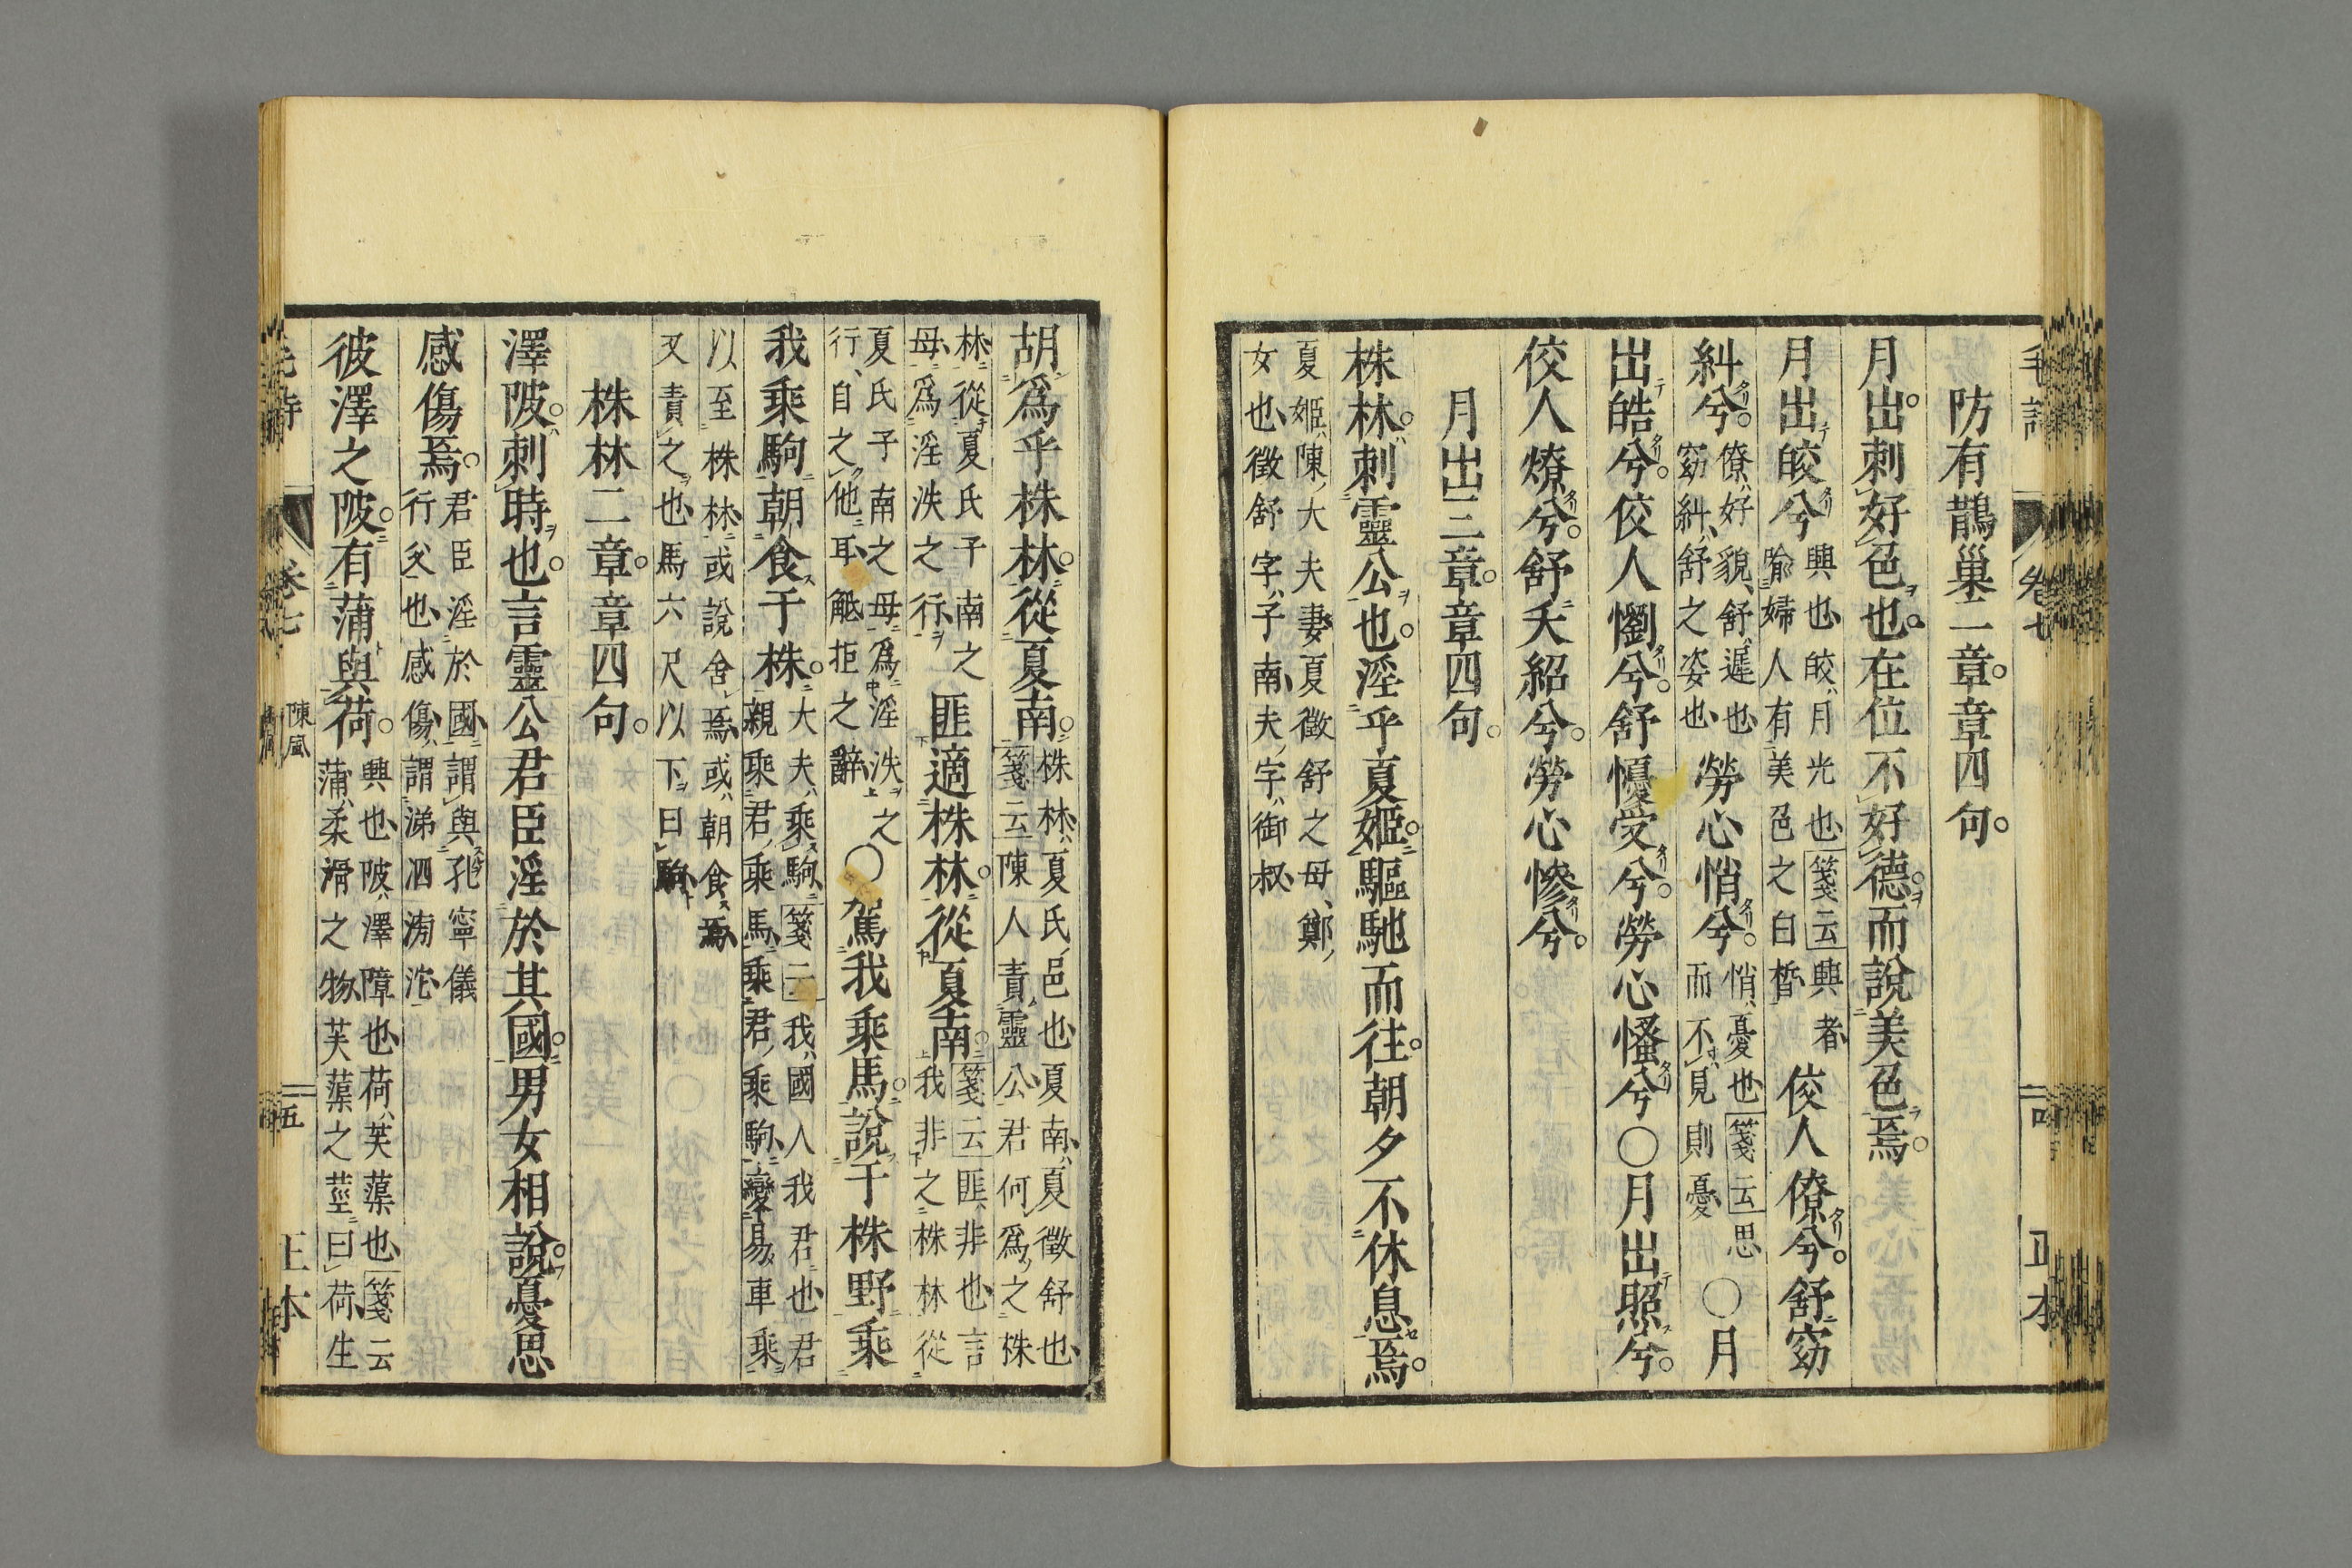 防有鵲巢二章章四句
月出刺好色也在位不好德而說美色焉
月出皎兮興也皎月光也箋云興者
喻婦人有美色之白皙佼人僚兮舒窈
糾兮僚好貌舒遲也
窈糾舒之姿也勞心悄兮悄憂也箋云思
而不見則憂○月
出皓兮佼人懰兮舒慢受兮勞心慅兮○月出照兮
佼人燎兮舒夭紹兮勞心慘兮
月出三章章四句
株林刺靈公也淫乎夏姬驅馳而往朝夕不休息焉
夏姬陳大夫妻夏徵舒之母鄭
女也徵舒字子南夫字御叔
毛詩
卷七
四
正本
胡爲乎株林從夏南株林夏氏邑也夏南夏徵舒也
箋云陳人責靈公君何爲之株
林從夏氏子南之
母爲淫泆之行匪適株林從夏南箋云匪非也言
我非之株林從
夏氏子南之母爲淫泆之
行自之他耳觝拒之辭○駕我乘馬說于株野乘
我乘駒朝食于株大夫乘駒箋云我國人我君也君
親乘君乘馬乘君乘駒變易車乘
以至株林或說舍焉或朝食焉
又責之也馬六尺以下曰駒
株林二章章四句
澤陂刺時也言靈公君臣淫於其國男女相說憂思
感傷焉君臣淫於國謂與孔寧儀
行父也感傷謂涕泗滂沱
彼澤之陂有蒲與荷興也陂澤障也荷芙蕖也箋云
蒲柔滑之物芙蕖之莖曰荷生
毛詩
卷七
陳風
五
正本